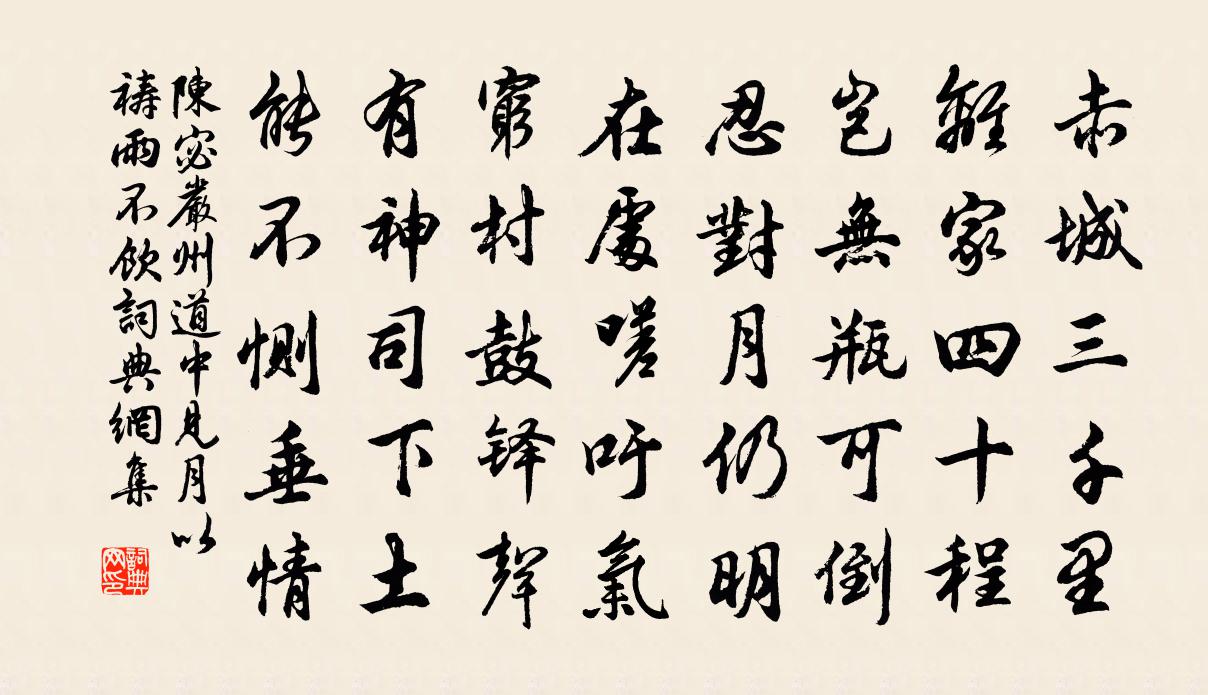 赤城三千里
離家四十程
豈無瓶可倒
忍對月仍明
在處嗟吁氣
窮村鼓铎聲
有神司下土
能不惻垂情
陳宓嚴州道中見月以
禱雨不飲詞典網集
詞典网印